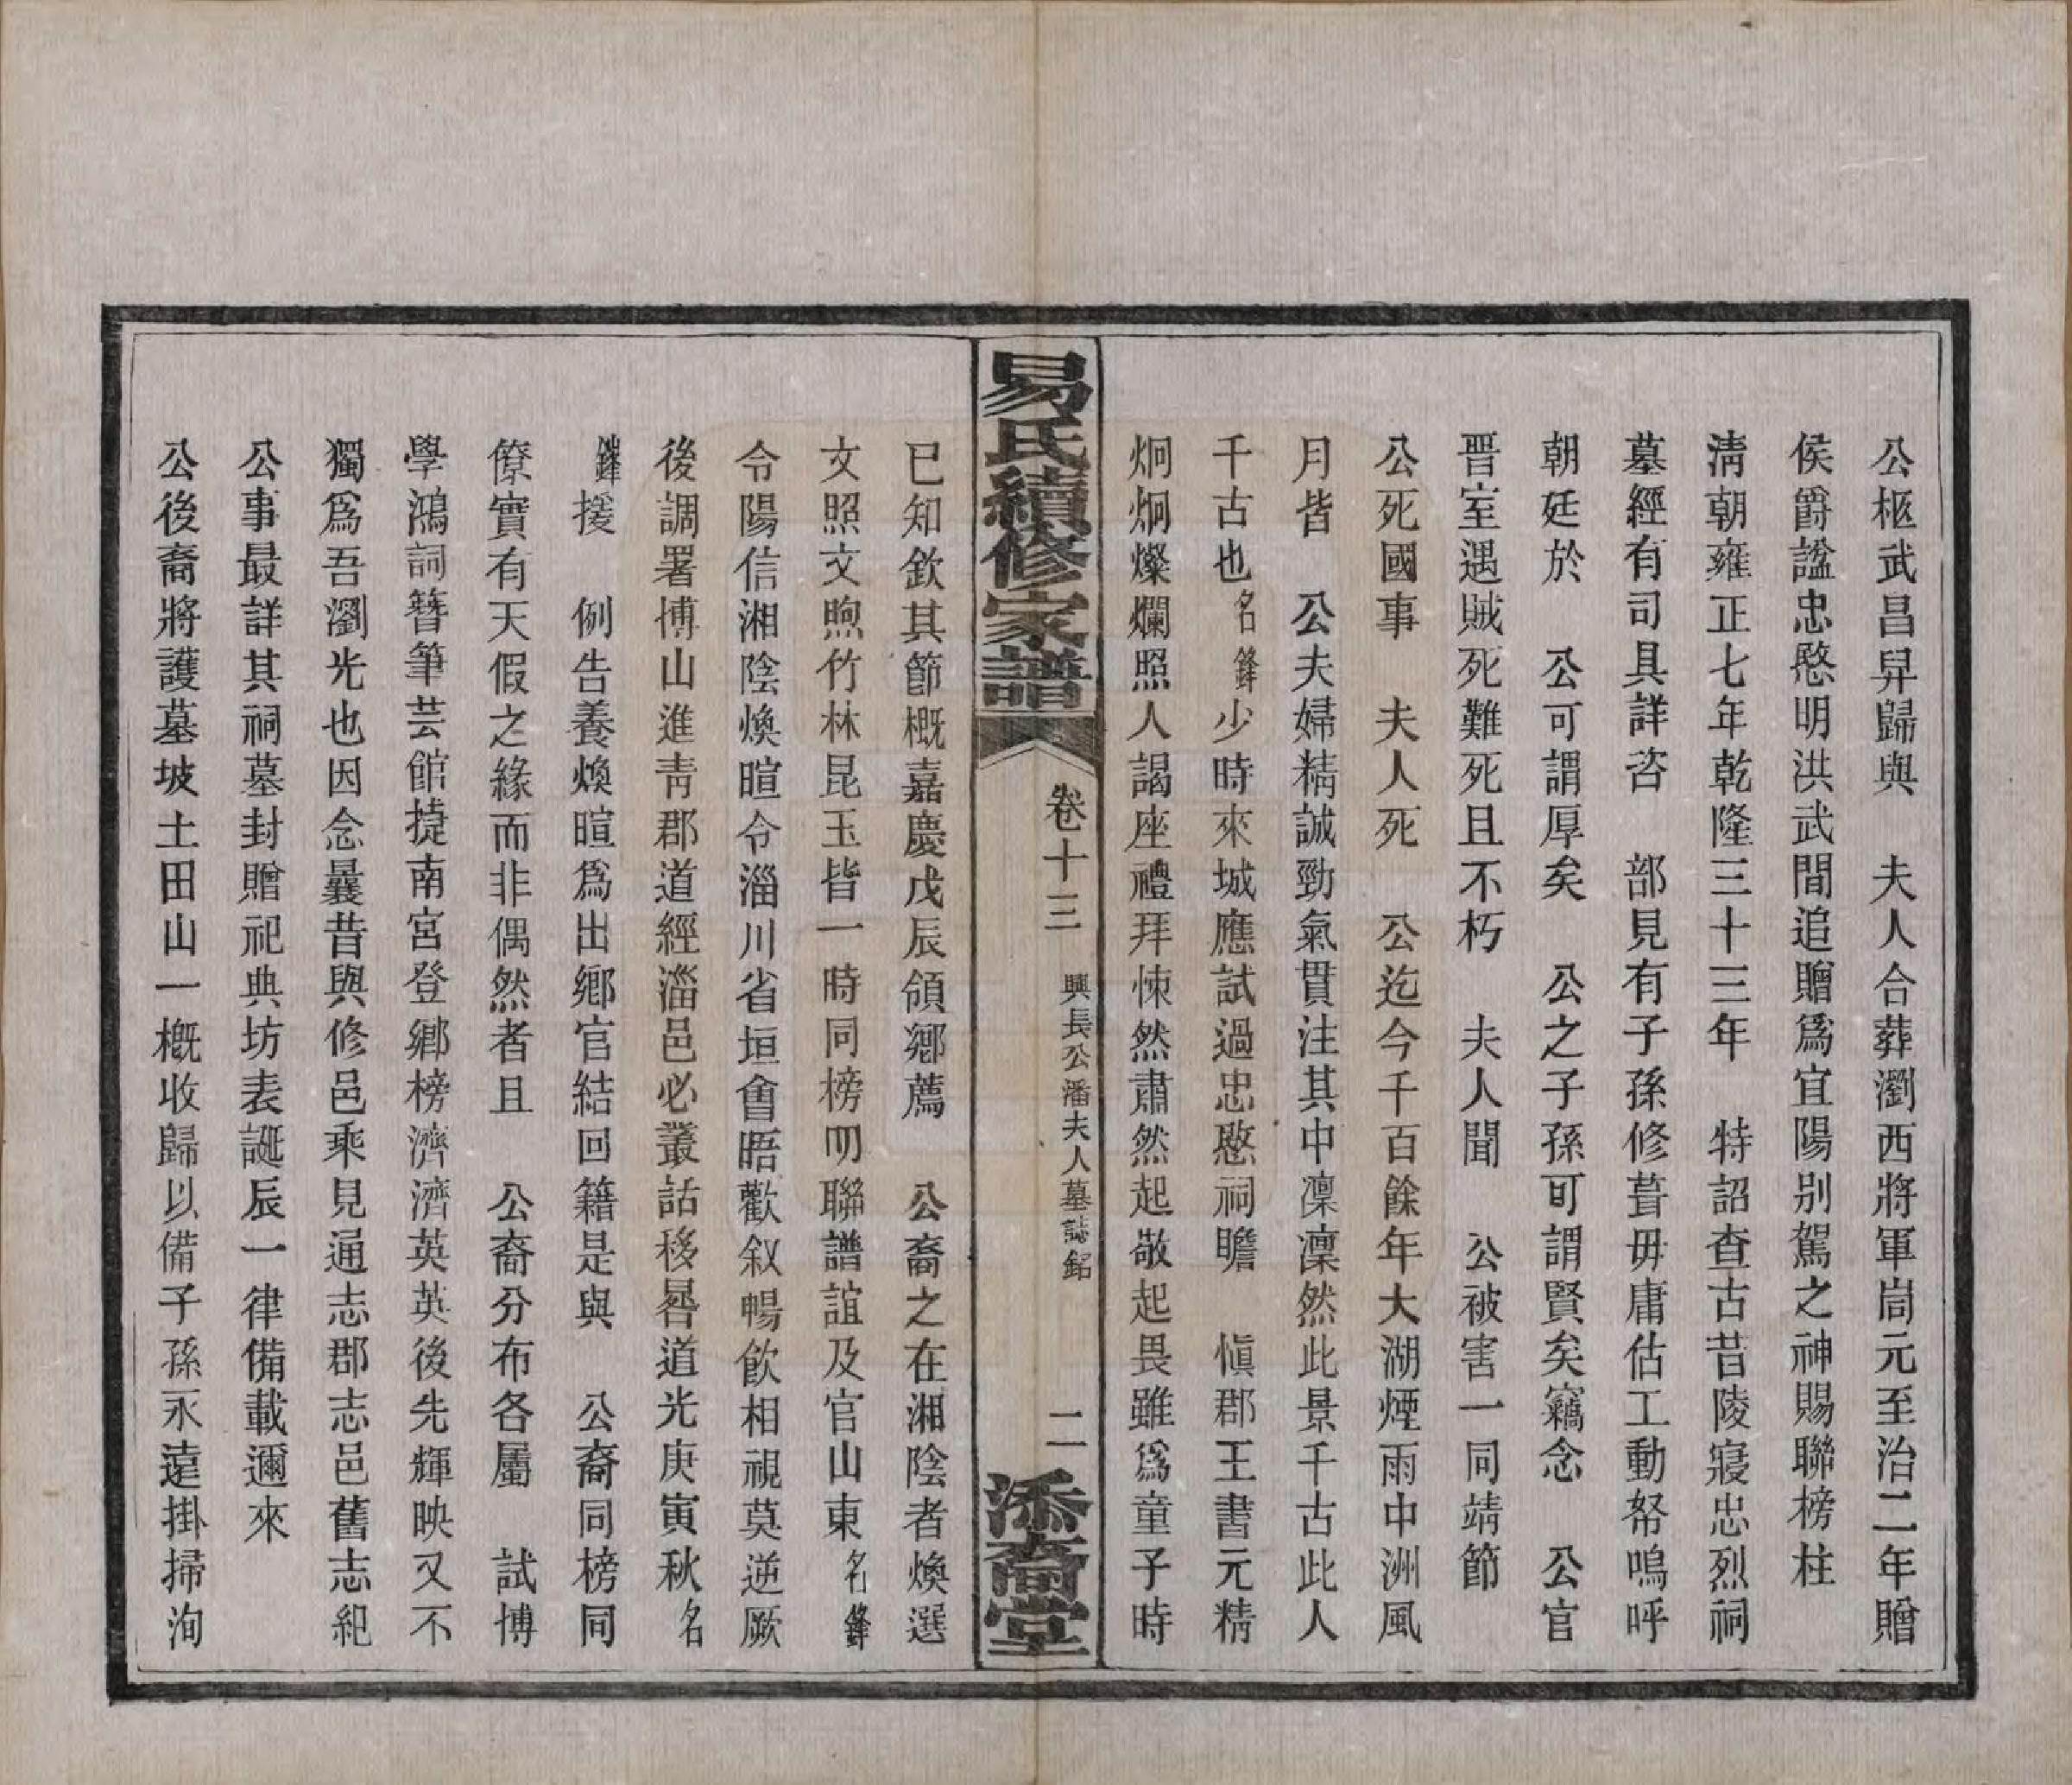 公柩武昌舁歸與　夫人合葬瀏西將軍崗元至治二年贈
侯爵謚忠愍明洪武間追贈爲宜陽別駕之神賜聯榜柱
淸朝雍正七年乾隆三十三年　特詔查古昔陵寢忠烈祠
墓經有司具詳咨　部見有子孫修葺毋庸估工動帑嗚呼
朝廷於　公可謂厚矣　公之子孫可謂賢矣竊念　公官
晋室遇賊死難死且不朽　夫人聞　公被害一同靖節
公死國事　夫人死　公迄今千百餘年大湖煙雨中洲風
月皆　公夫婦精誠勁氣貫注其中凜凜然此景千古此人
千古也名鋒少時來城應試過忠愍祠瞻　愼郡王書元精
炯炯燦爛照人謁座禮拜悚然肅然起敬起畏雖爲童子時
易氏續修家譜
卷十三
興長公潘夫人墓誌銘
二
添裔堂
已知欽其節概嘉慶戊辰領鄉薦　公裔之在湘陰者煥選
文照文煦竹林昆玉皆一時同榜明聯譜誼及官山東名鋒
令陽信湘陰煥暄令淄川省垣會晤歡叙暢飮相視莫逆厥
後調署博山進靑郡道經淄邑必叢話移晷道光庚寅秋名
鋒援　例告養煥暄爲出鄉官結回籍是與　公裔同榜同
僚實有天假之緣而非偶然者且　公裔分布各屬　試博
學鴻詞簪筆芸館捷南宮登鄉榜濟濟英英後先輝映又不
獨爲吾瀏光也因念曩昔與修邑乘見通志郡志邑舊志紀
公事最詳其祠墓封贈祀典坊表誕辰一律備載邇來
公後裔將護墓坡土田山一槪收歸以備子孫永遠掛掃洵